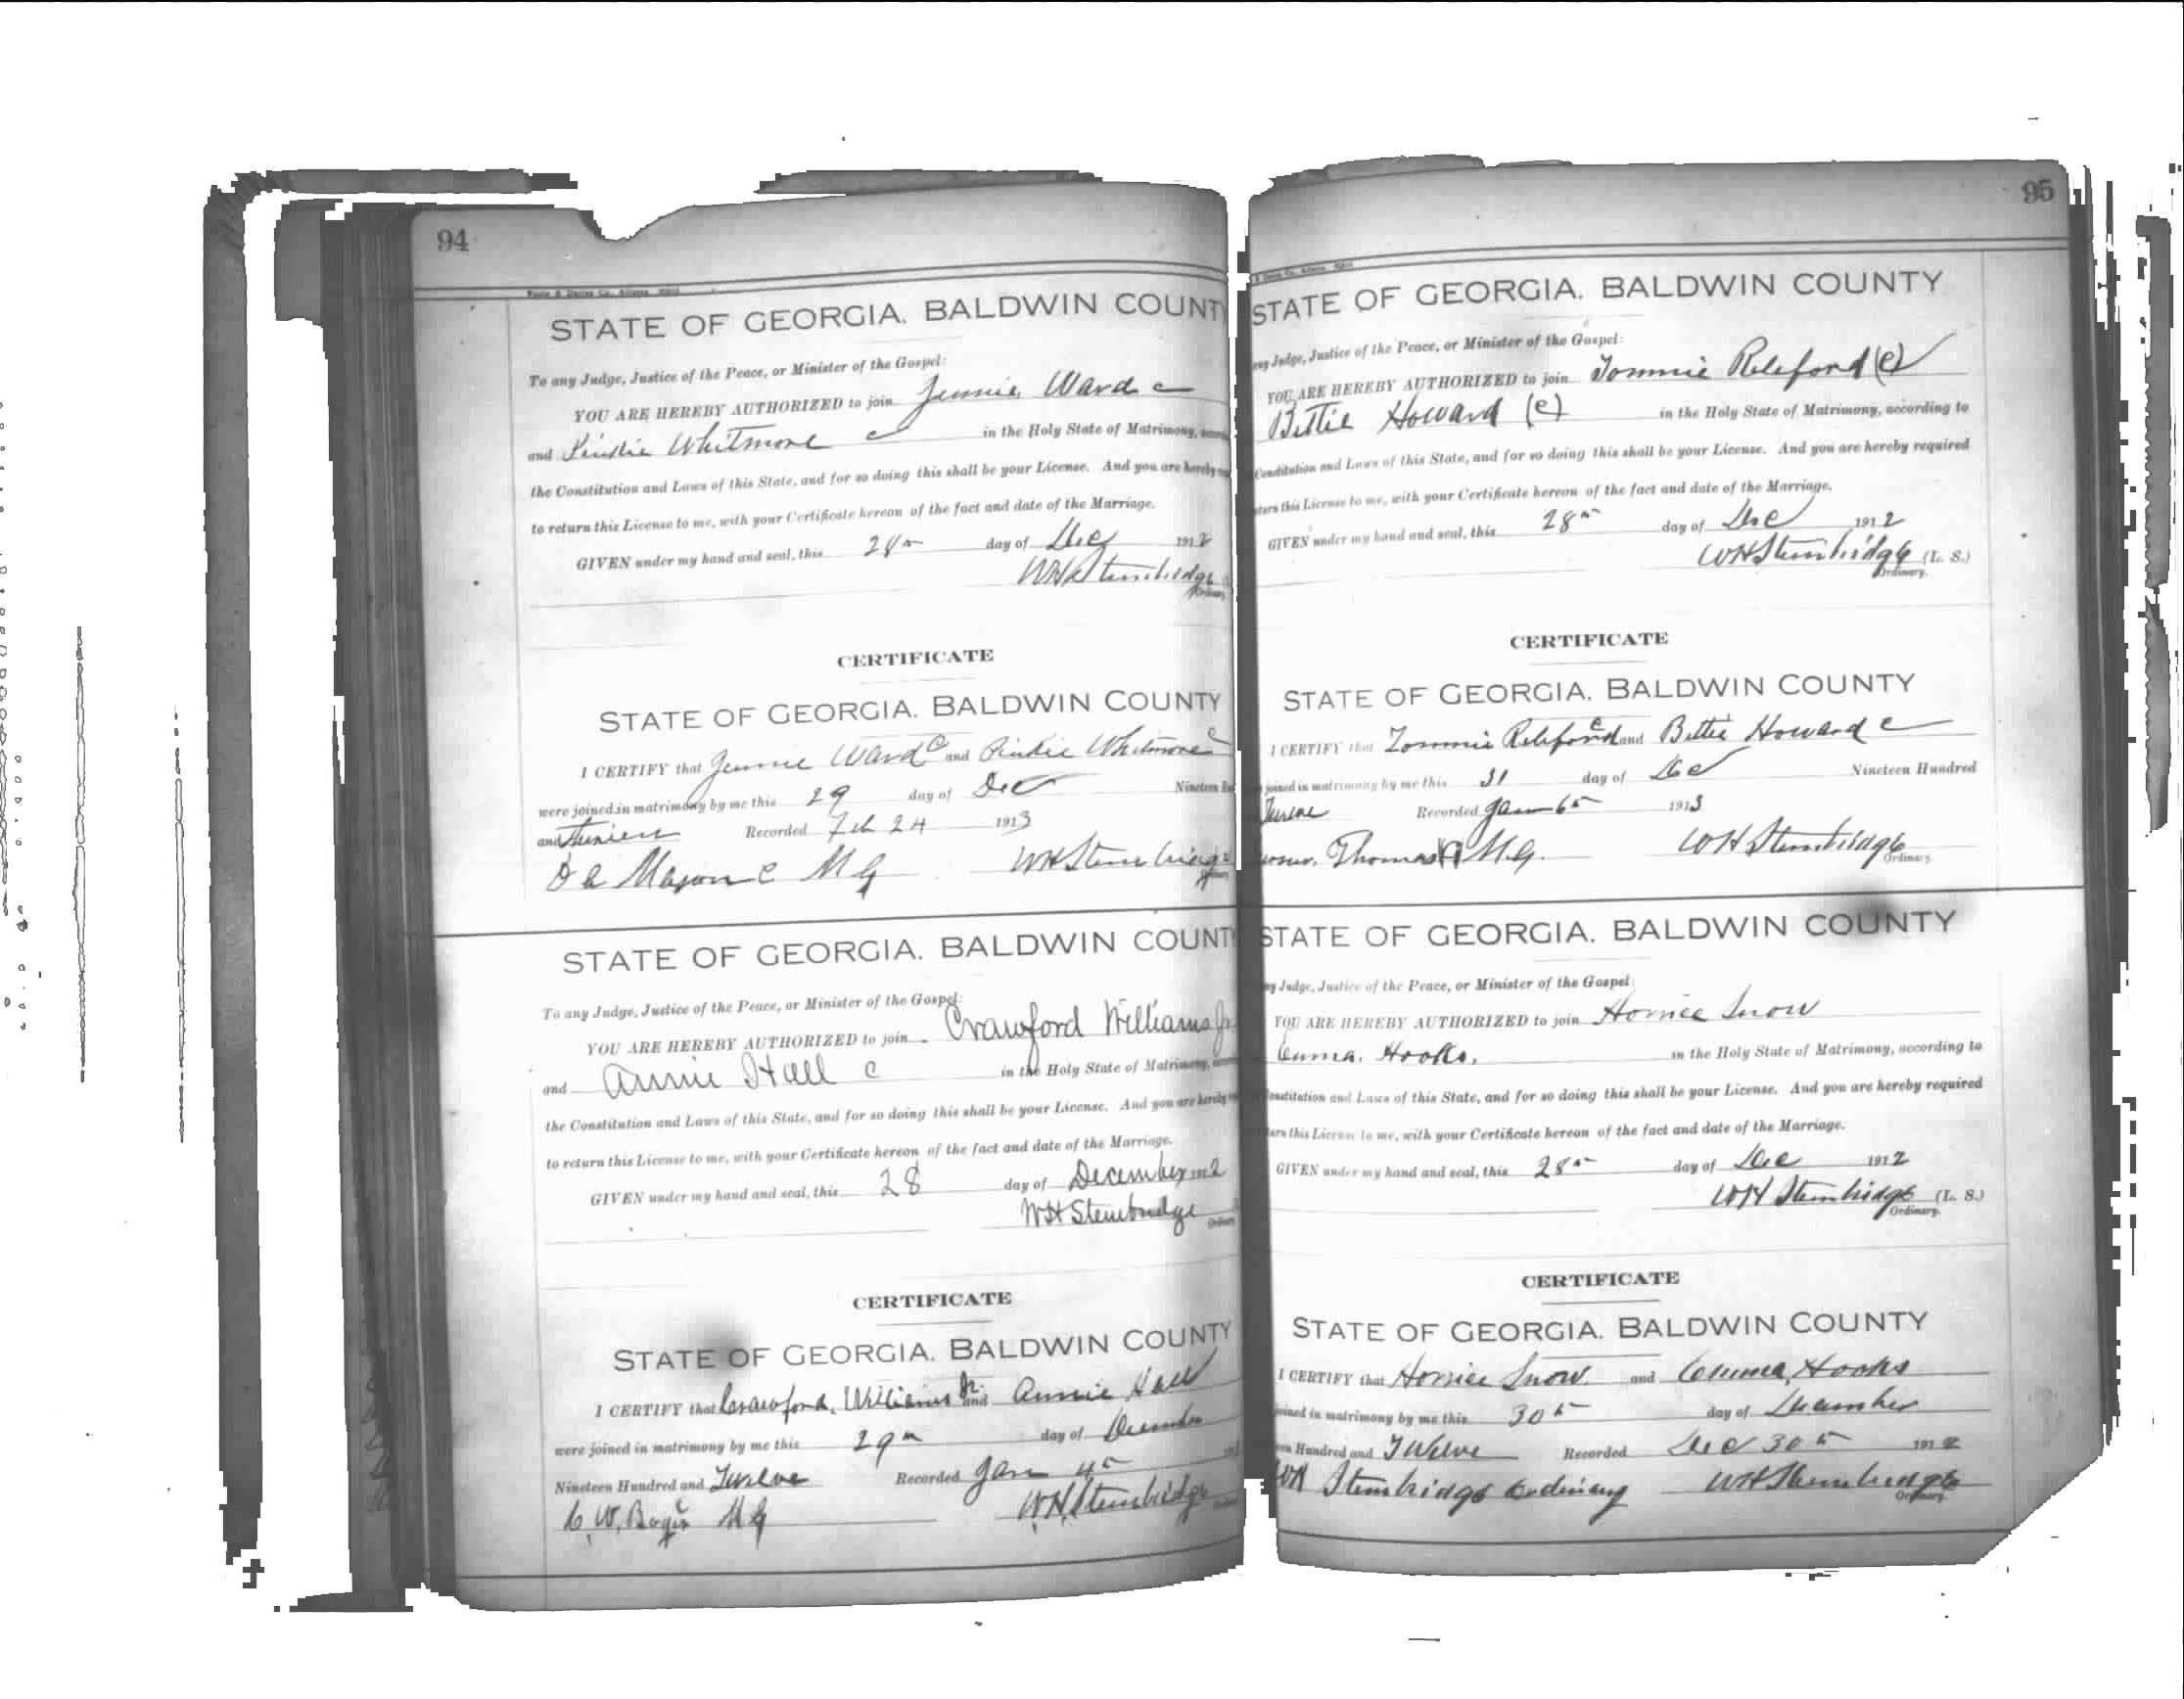 94
STATE OF GEORGIA. BALDWIN COUNT
To any Judge, Justice of the Peace, or Minister of the Gospel:
YOU ARE HEREBY AUTHORIZED to join Jennie Ward c
and Pinkie Whitmore c in the Holy State of Matrimony,
the Constitution and Laws of this State, and for so doing this shall be your License. And you are hereby
to return this License to me, with your Certificate hereon of the fact and date of the Marriage.
GIVEN under my hand and seal, this 28th day of Dec 1912
WH Stembridge
Ordinary
CERTIFICATE
STATE OF GEORGIA. BALDWIN COUNTY
I CERTIFY that Jennie Ward c and Pinkie Whitmore c
were joined in matrimony by me this 29 day of Dec Nineteen
and Recorded Feb 24 1913
D a Mason c M G WH Stembridge
STATE OF GEORGIA. BALDWIN COUNT
To any Judge, Justice of the Peace, or Minister of the Gospel:
YOU ARE HEREBY AUTHORIZED to join Crawford Williams Jr
and Annie Hall c in the Holy State of Matrimony,
the Constitution and Laws of this State, and for so doing this shall be your License. And you are hereby
to return this License to me, with your Certificate hereon of the fact and date of the Marriage.
GIVEN under my hand and seal, this 28 day of December 1912
WH Stembridge
Ordinary
CERTIFICATE
STATE OF GEORGIA. BALDWIN COUNTY
I CERTIFY that Crawford Williams Jr. and Annie Hall
were joined in matrimony by me this 29th day of December
Nineteen Hundred and Twelve Recorded Jan 4th
C. W. M G W.H. Stembridge
95
STATE OF GEORGIA. BALDWIN COUNTY
any Judge, Justice of the Peace, or Minister of the Gospel:
YOU ARE HEREBY AUTHORIZED to join Tommie Releford (c)
Bettie Howard (c) in the Holy State of Matrimony, according to
Constitution and Laws of this State, and for so doing this shall be your License. And you are hereby required
turn this License to me, with your Certificate hereon of the fact and date of the Marriage.
GIVEN under my hand and seal, this 28th day of Dec 1912
WH Stembridge (L. S.)
Ordinary.
CERTIFICATE
STATE OF GEORGIA. BALDWIN COUNTY
I CERTIFY that Tommie Releford c and Bettie Howard c
joined in matrimony by me this 31 day of Dec Nineteen Hundred
Twelve Recorded Jan 6th 1913
Thomas M.G. WH Stembridge
Ordinary.
STATE OF GEORGIA. BALDWIN COUNTY
ny Judge, Justice of the Peace, or Minister of the Gospel:
YOU ARE HEREBY AUTHORIZED to join Horrice Snow
Emma Hooks. in the Holy State of Matrimony, according to
Constitution and Laws of this State, and for so doing this shall be your License. And you are hereby required
turn this License to me, with your Certificate hereon of the fact and date of the Marriage.
GIVEN under my hand and seal, this 28th day of Dec 1912
WH Stembridge (L. S.)
Ordinary.
CERTIFICATE
STATE OF GEORGIA. BALDWIN COUNTY
I CERTIFY that Horrice Snow and Emma Hooks
joined in matrimony by me this 30th day of December
Hundred and Twelve Recorded Dec 30th 1912
WH Stembridge Ordinary WH Stembridge
Ordinary.